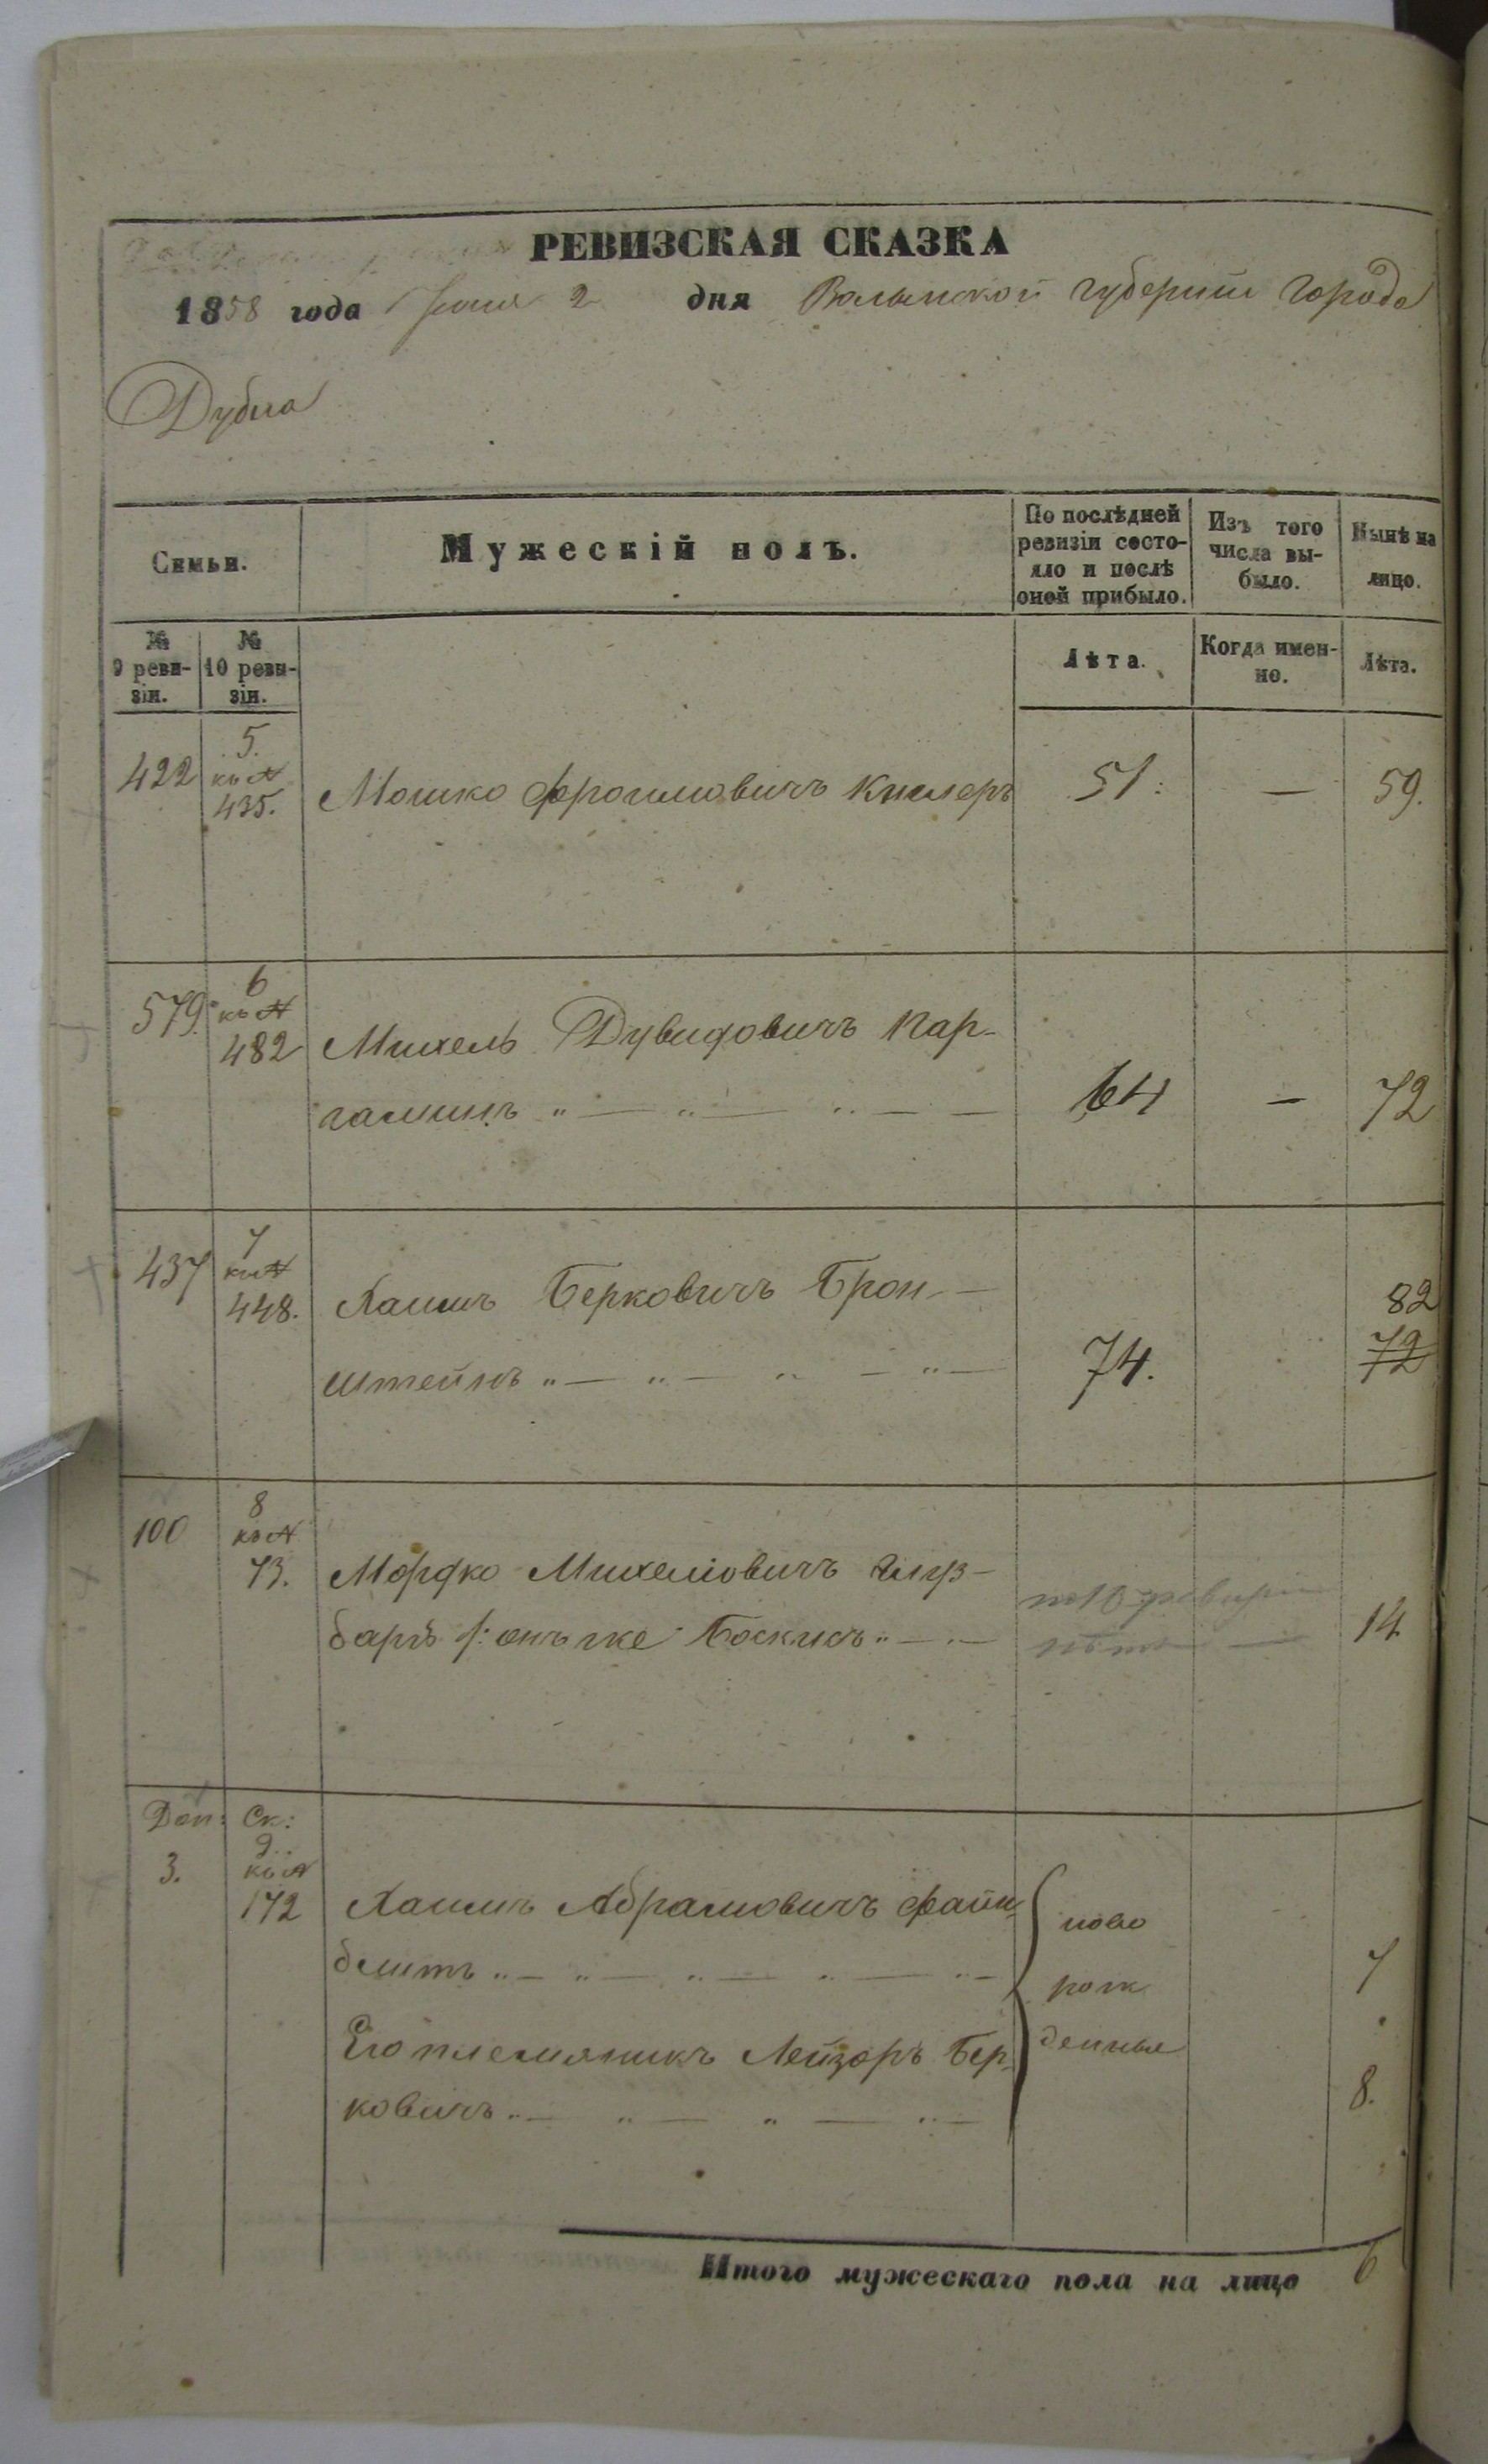 РЕВИЗСКАЯ СКАЗКА
1858 года Іюня 2 дня Волынской губерніи города
Дубна
Семьи. Мужескій полъ. По послѣдней ревизіи состояло и послѣ оной прибыло. Изъ того числа выбыло. Нынѣ на лицо.
№ 9 ревизіи. № 10 ревизіи. Лѣта. Когда именно. Лѣта.
422 5. къ № 435. Мошко Фроимовичъ 51. — 59.
579. 6 къ № 482 Михель Дувидовичъ Мар-
галитъ „ — „ — „ — — 64 — 72
437 7 къ № 448. Хаимъ Берковичъ Брон-
штейнъ „ — „ — „ — „ — 74. 82 72
100 8 къ № 73. Мордко Михелiовичъ
онъ же по 10 ревизіи
14
Доп: Ск:
3. 9. къ № 172 Хаимъ Абрамовичъ Файн
блитъ „ — „ — „ — „ — „ — ново 7
рож
Его племяникъ Лейзоръ Бер- денные
ковичъ „ — „ — „ — „ — 8.
Итого мужескаго пола на лицо 6